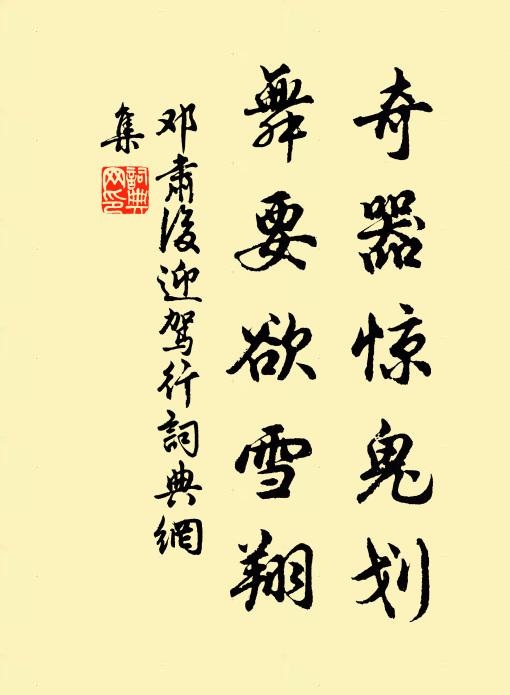 奇器惊鬼划
舞要欲雪翔
邓肃后迎驾行詞典網
集
詞典网印